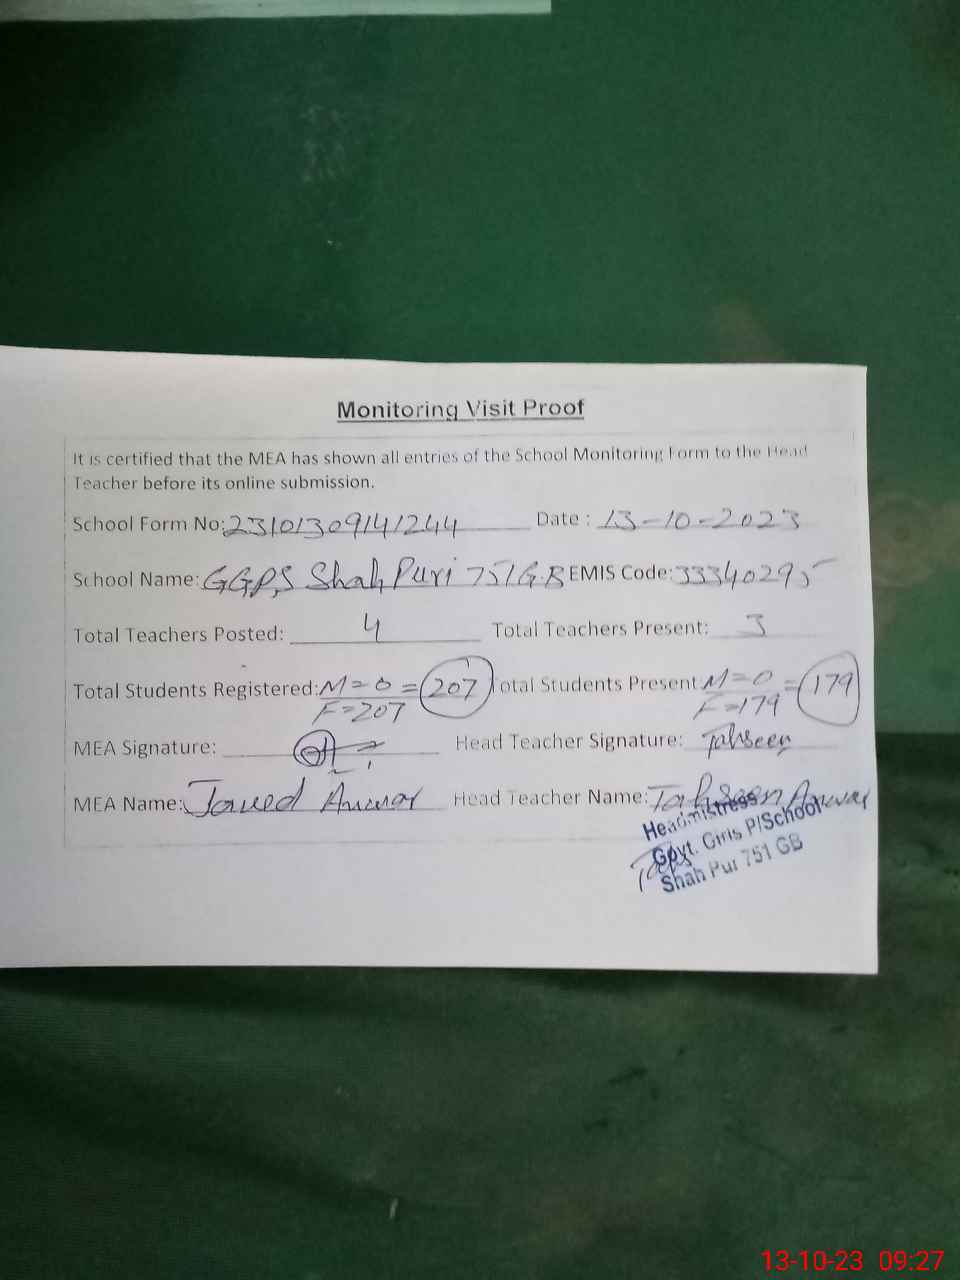 Monitoring Visit Proof
It is certified that the MEA has shown all entries of the School Monitoring Form to the Head
Teacher before its online submission.
School Form No: 23101309141244 Date : 13-10-2023
School Name: GGPS Shah Puri 751 G.B EMIS Code: 33340295
Total Teachers Posted: 4 Total Teachers Present: 3
Total Students Registered: M=0 = 207 Total Students Present M=0 = 179
F=207 F=179
MEA Signature: Head Teacher Signature: Tahseen
MEA Name: Javed Anwar Head Teacher Name: Tahseen Anwar
Headmistress
Govt. Girls P/School
Shah Pur 751 GB
13-10-23 09:27